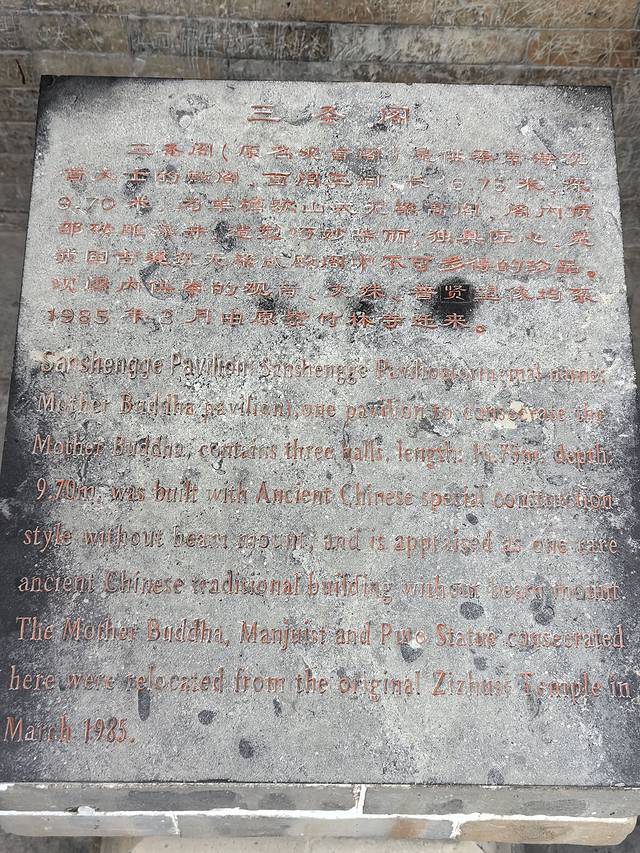 三圣阁
三圣阁（原名观音阁）是供奉南海观
音大士的殿阁，面阔三间，长 6.75 米，深
9.70 米，为单檐歇山式无梁高阁，阁内
砖雕藻井，造型巧妙华丽，独具匠心，是
我国古建筑无梁式殿阁中不可多得的珍品。
现阁内供奉的观音、文殊、普贤圣像均系
1985 年 3 月由原紫竹林寺迁来。
Sanshengge Pavilion: Sanshengge Pavilion(original name:
Mother Buddha pavilion),one pavilion to consecrate the
Mother Buddha, contains three halls, length: 16.75m, depth:
9.70m, was built with Ancient Chinese special construction
style without beam mount, and is appraised as one rare
ancient Chinese traditional building without beam mount.
The Mother Buddha, Manjuist and Puxo Statue consecrated
here were relocated from the original Zizhusi Temple in
March 1985.